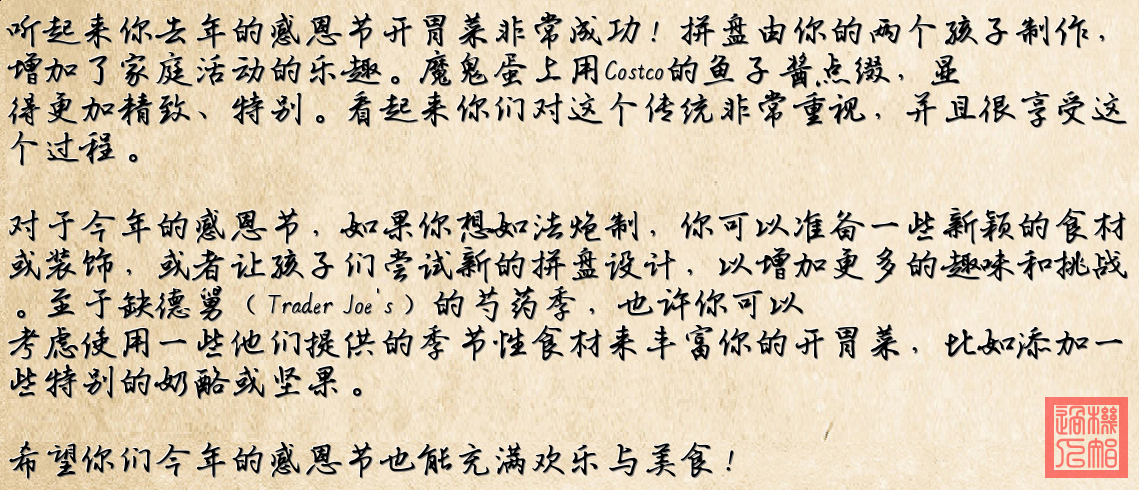 听起来你去年的感恩节开胃菜非常成功！拼盘由你的两个孩子制作，
增加了家庭活动的乐趣。魔鬼蛋上用Costco的鱼子酱点缀，显
得更加精致、特别。看起来你们对这个传统非常重视，并且很享受这
个过程。
对于今年的感恩节，如果你想如法炮制，你可以准备一些新颖的食材
或装饰，或者让孩子们尝试新的拼盘设计，以增加更多的趣味和挑战
。至于缺德舅（Trader Joe's）的芍药季，也许你可以
考虑使用一些他们提供的季节性食材来丰富你的开胃菜，比如添加一
些特别的奶酪或坚果。
希望你们今年的感恩节也能充满欢乐与美食！